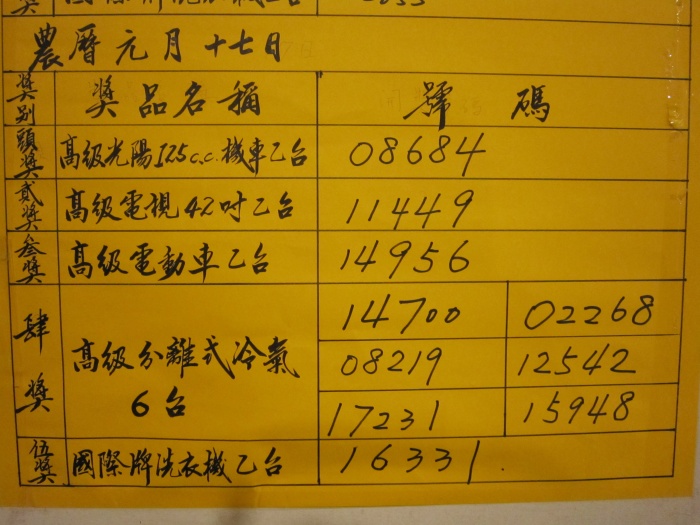 獎 國際牌洗衣機乙台
農曆元月十七日
獎別 獎品名稱 號碼
頭獎 高級光陽125c.c.機車乙台 08684
貳獎 高級電視42吋乙台 11449
叁獎 高級電動車乙台 14956
肆獎 高級分離式冷氣6台 14700 02268
08219 12542
17231 15948
伍獎 國際牌洗衣機乙台 16331